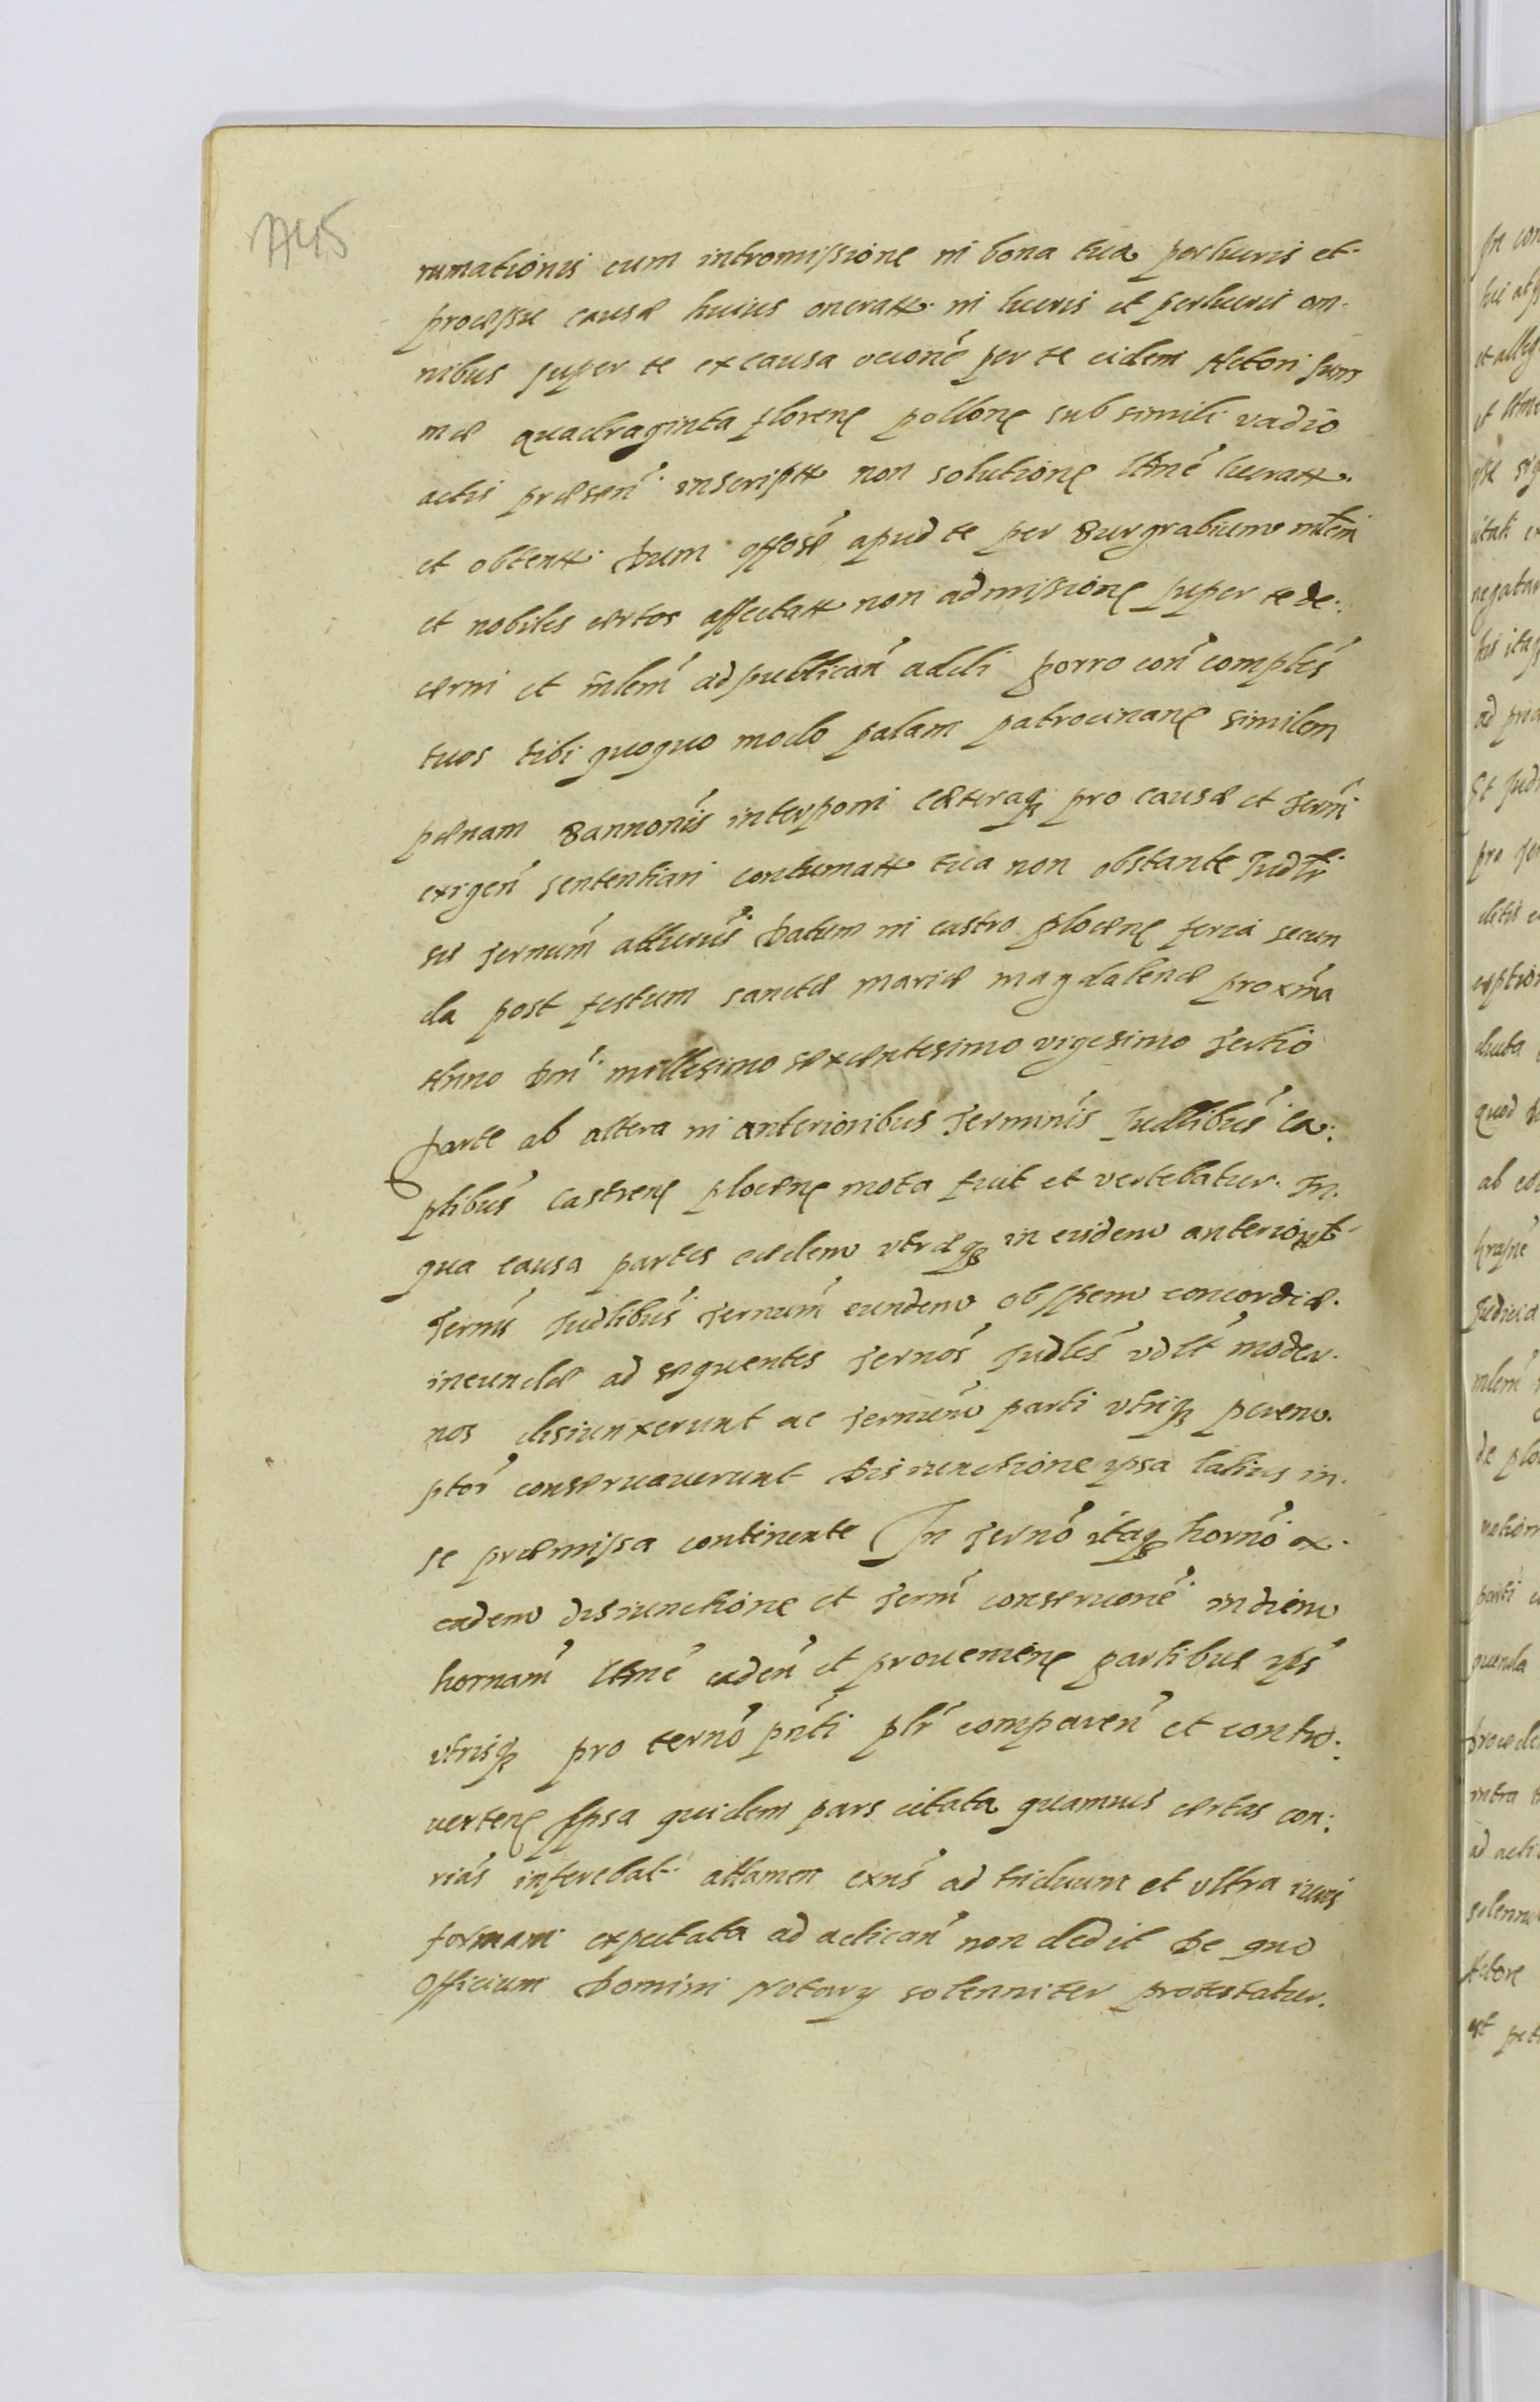 rumationis cum intromissione in bona tua per lucris et
processu causæ huius oneratt. in lucris et perlucris om-
nibus super te ex causa occone per te eidem Actori sum
mæ quadraginta floren pollon sub simili vadio
actis præsen inscriptt non solution ltme lucratt.
et obtentt. Dum offose apud te per Burgrabium mlem
et nobiles certos affectatt non admission super te de:
cerni et mlem ad publican addi porro con comples
tuos tibi quoquo modo palam patrocinan similem
pænam Bannonis interponi cæteraq pro causæ et termi
exigen sententiari contumatt tua non obstante Judlr
sis ternum atturus Datum in castro plocen feria secun
da post festum sanctæ mariæ magdalenæ proxima
Anno Dni millesimo sexcentesimo vigesimo tertio
Parte ab altera in anterioribus Terminis Judlibus ca:
plibus Castren plocen mota fuit et vertebatur. In
qua causa partes eædem utræq in eisdem anteriori
Ternis Judlibus ternum eundem ob spem concordiæ
ineundæ ad sequentes ternos Judles vdlt moder-
nos disiunxerunt ac ternum parti utriq perem-
ptor conservaverunt Disiunctione ipsa latius in
se præmissa continente In terno itaq horno ex
eadem disiunctione et termi conservone in diem
hornam ltme caden et provenien partibus ips
utrisq pro terno pnti plr comparen et contro:
verten Ipsa quidem pars citata quamuis certas con:
rias inferebat attamen exns ad triduum et ultra iuris
formam expectata ad actican non dedit De quo
Officium Domini Notary solenniter protestatur.